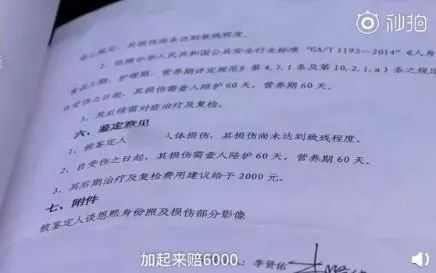 秒拍
会人鉴定，其损伤尚未达到致残程度。
2、依据中华人民共和国公共安全行业标准“GA/T 1193—2014”《人身
误工期、护理期、营养期评定规范》第 4.7.1 条及第 10.2.1.a）条之规定
自受伤之日起，其损伤需壹人陪护 60 天，营养期 60 天。
3、其后续需对症治疗及复检。
六、鉴定意见
1、被鉴定人 人体损伤，其损伤尚未达到致残程度。
2、自受伤之日起，其损伤需壹人陪护 60 天，营养期 60 天。
3、其后期治疗及复检费用建议给于 2000 元。
七、附件
被鉴定人谈恩熙身份照及损伤部分影像
加起来赔6000
：李晋佑